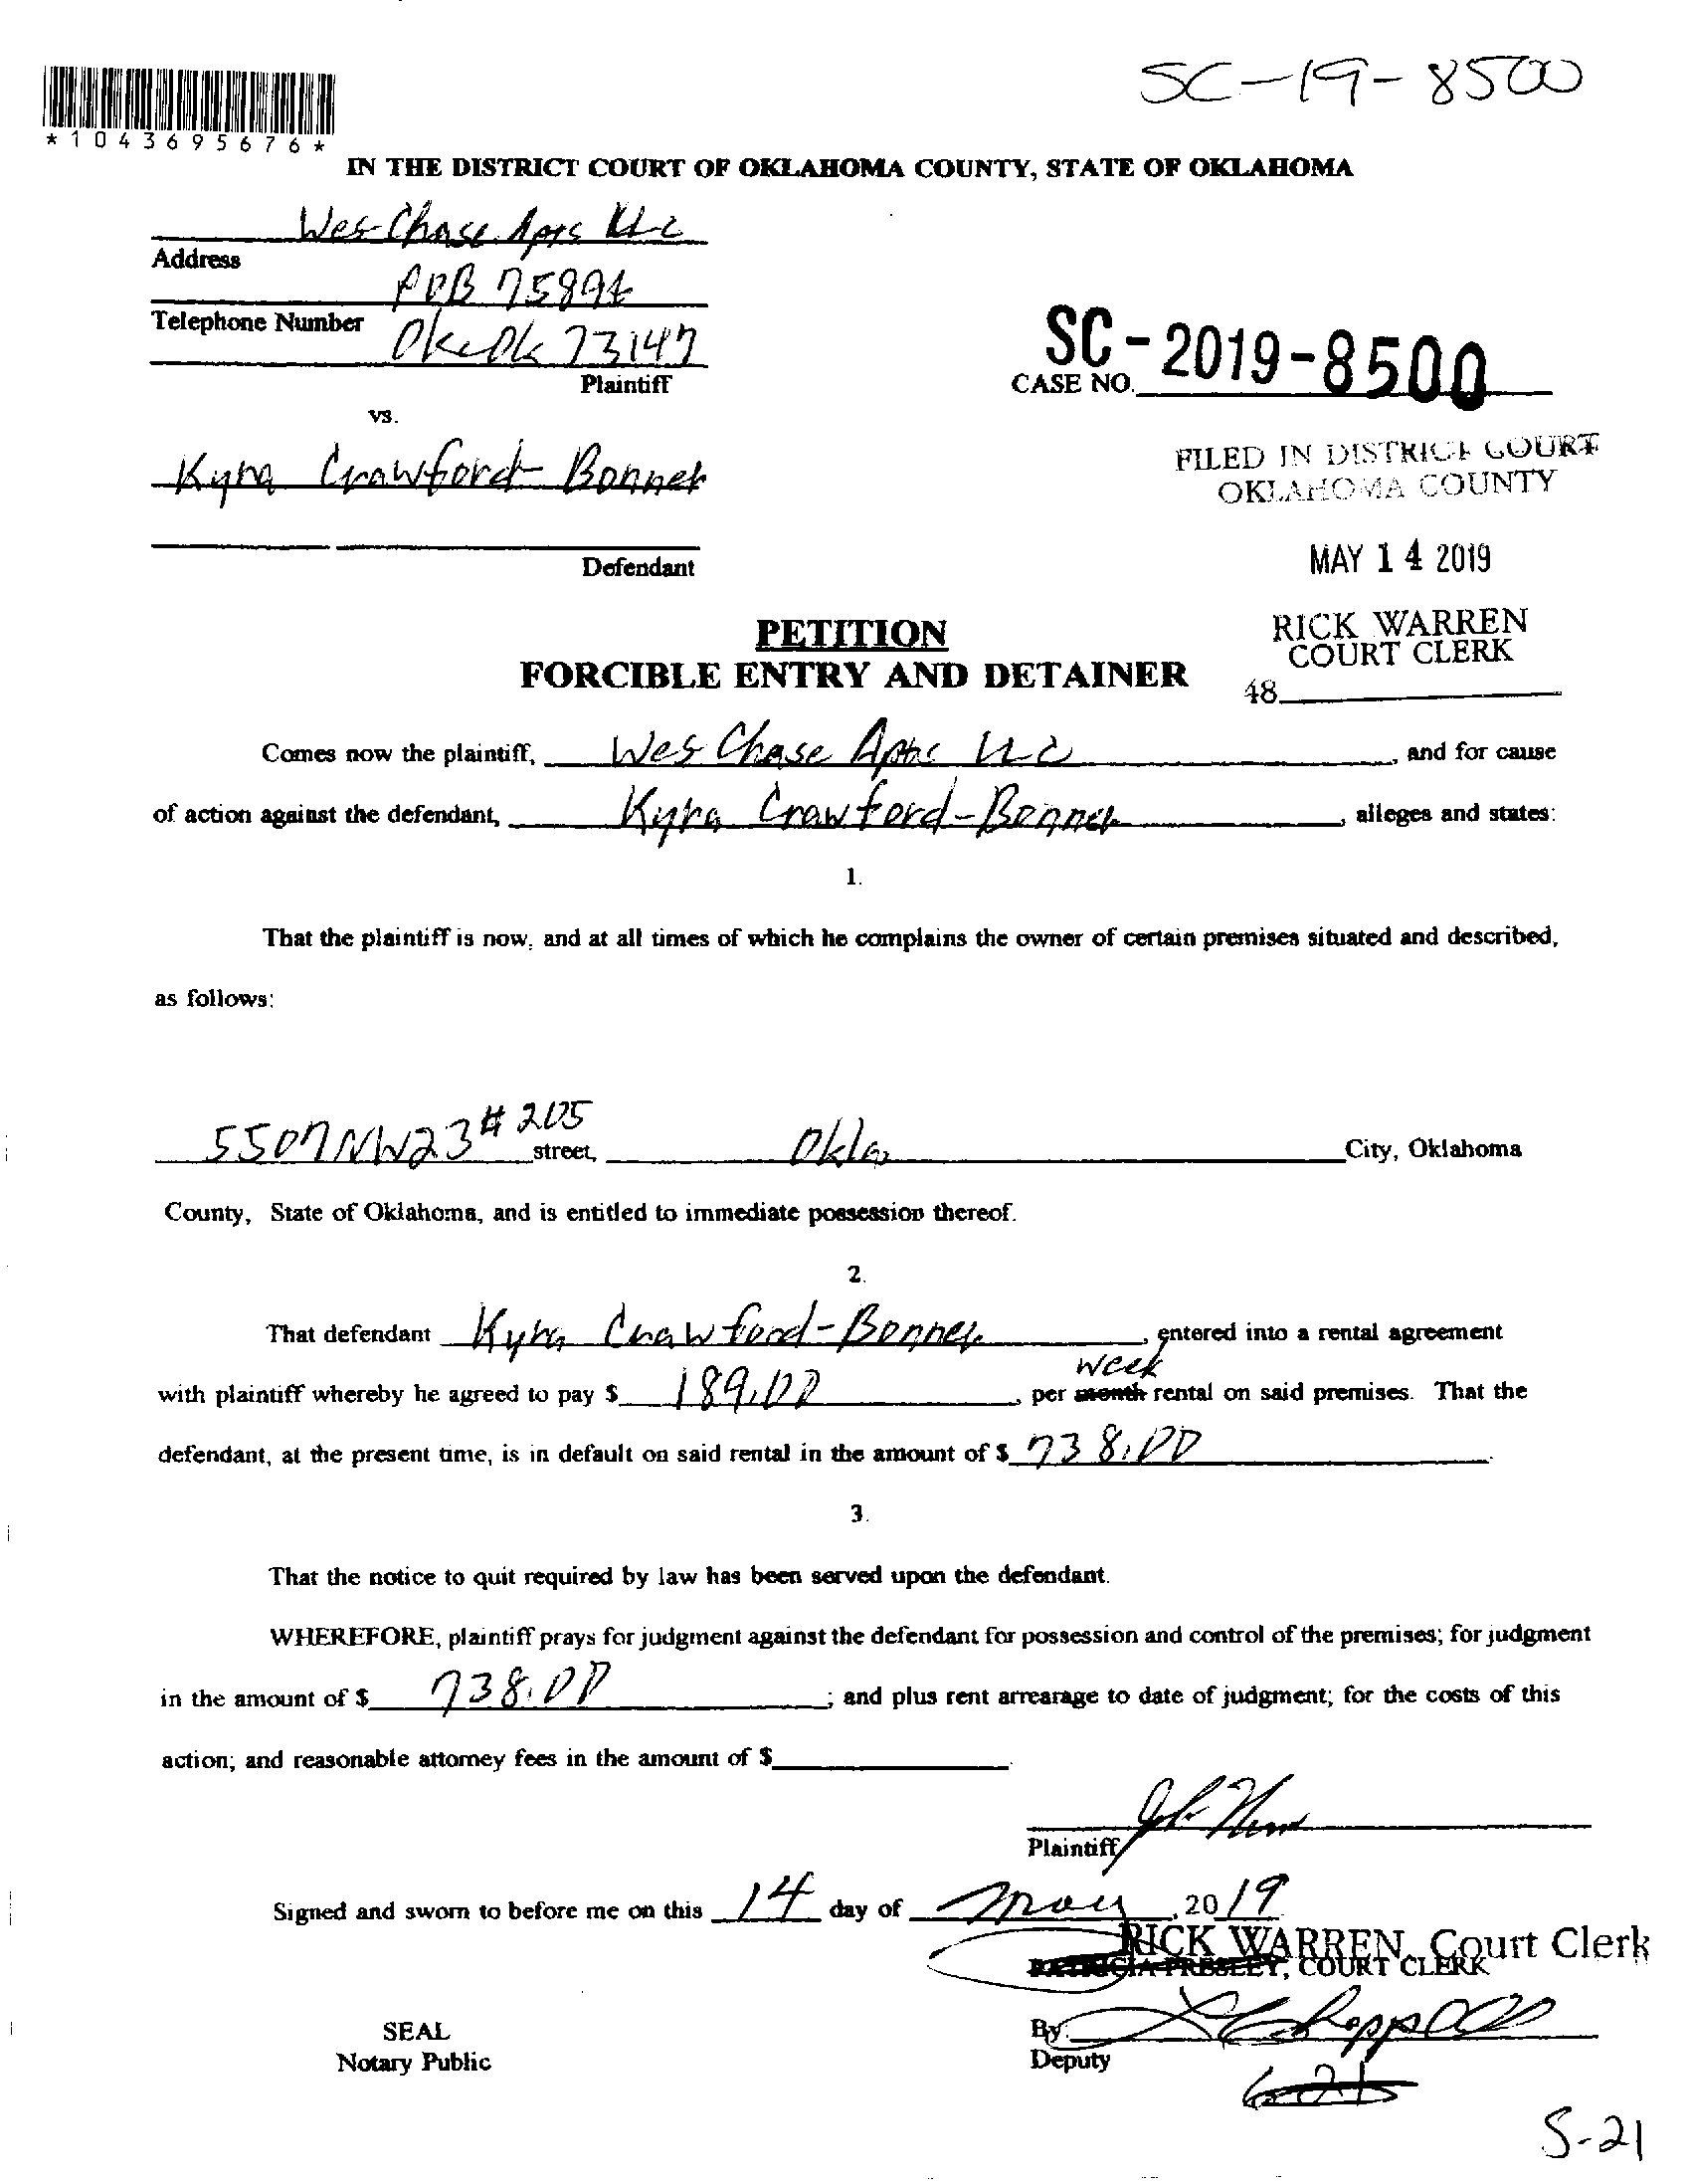 SC-19-8500
*1043695676*
IN THE DISTRICT COURT OF OKLAHOMA COUNTY, STATE OF OKLAHOMA
Wes Chase Apts LLC
Address
POB 75894
Telephone Number
Okc Ok 73147
Plaintiff
SC-2019-8500
CASE NO.
vs.
Kyra Crawford-Bonner
FILED IN DISTRICT COURT
OKLAHOMA COUNTY
Defendant
MAY 14 2019
PETITION
FORCIBLE ENTRY AND DETAINER
RICK WARREN
COURT CLERK
48
Comes now the plaintiff, Wes Chase Apts LLC, and for cause
of action against the defendant, Kyra Crawford-Bonner, alleges and states:
1.
That the plaintiff is now, and at all times of which he complains the owner of certain premises situated and described,
as follows:
5507 NW 23 #205 street, Okla City, Oklahoma
County, State of Oklahoma, and is entitled to immediate possession thereof.
2.
That defendant Kyra Crawford-Bonner, entered into a rental agreement
week
with plaintiff whereby he agreed to pay $ 189.00, per month rental on said premises. That the
defendant, at the present time, is in default on said rental in the amount of $ 738.00.
3.
That the notice to quit required by law has been served upon the defendant.
WHEREFORE, plaintiff prays for judgment against the defendant for possession and control of the premises; for judgment
in the amount of $ 738.00; and plus rent arrearage to date of judgment; for the costs of this
action; and reasonable attorney fees in the amount of $
Plaintiff
Signed and sworn to before me on this 14 day of May, 2019
RICK WARREN, Court Clerk
PATRICIA PRESLEY, COURT CLERK
SEAL
Notary Public
By:
Deputy
S-21